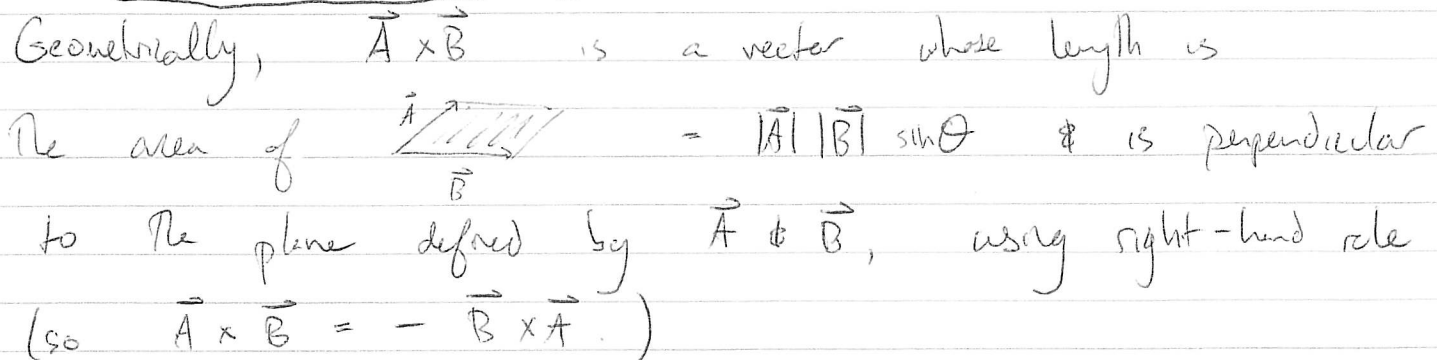 Geometrically, A⃗ × B⃗ is a vector whose length is
The area of A⃗ B⃗ = |A⃗| |B⃗| sinθ & is perpendicular
to The plane defined by A⃗ & B⃗, using right-hand rule
(so A⃗ × B⃗ = - B⃗ × A⃗.)